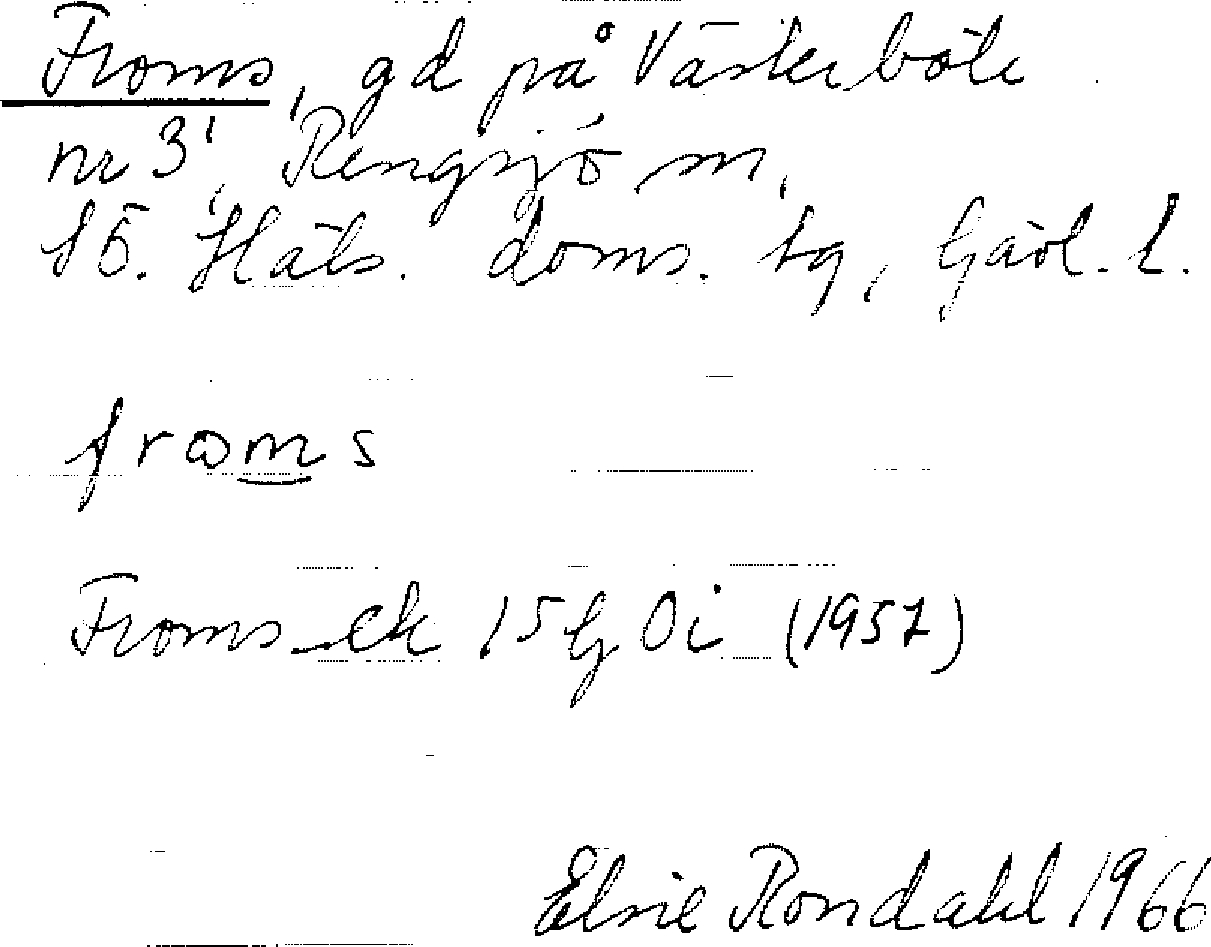 Froms, gd på Västerböle
nr 3¹, Rengsjö sn,
Sö. Häls. doms. tg, Gävl. l.
froms
Froms ek 15G 0i (1957)
Elsie Rondahl 1966